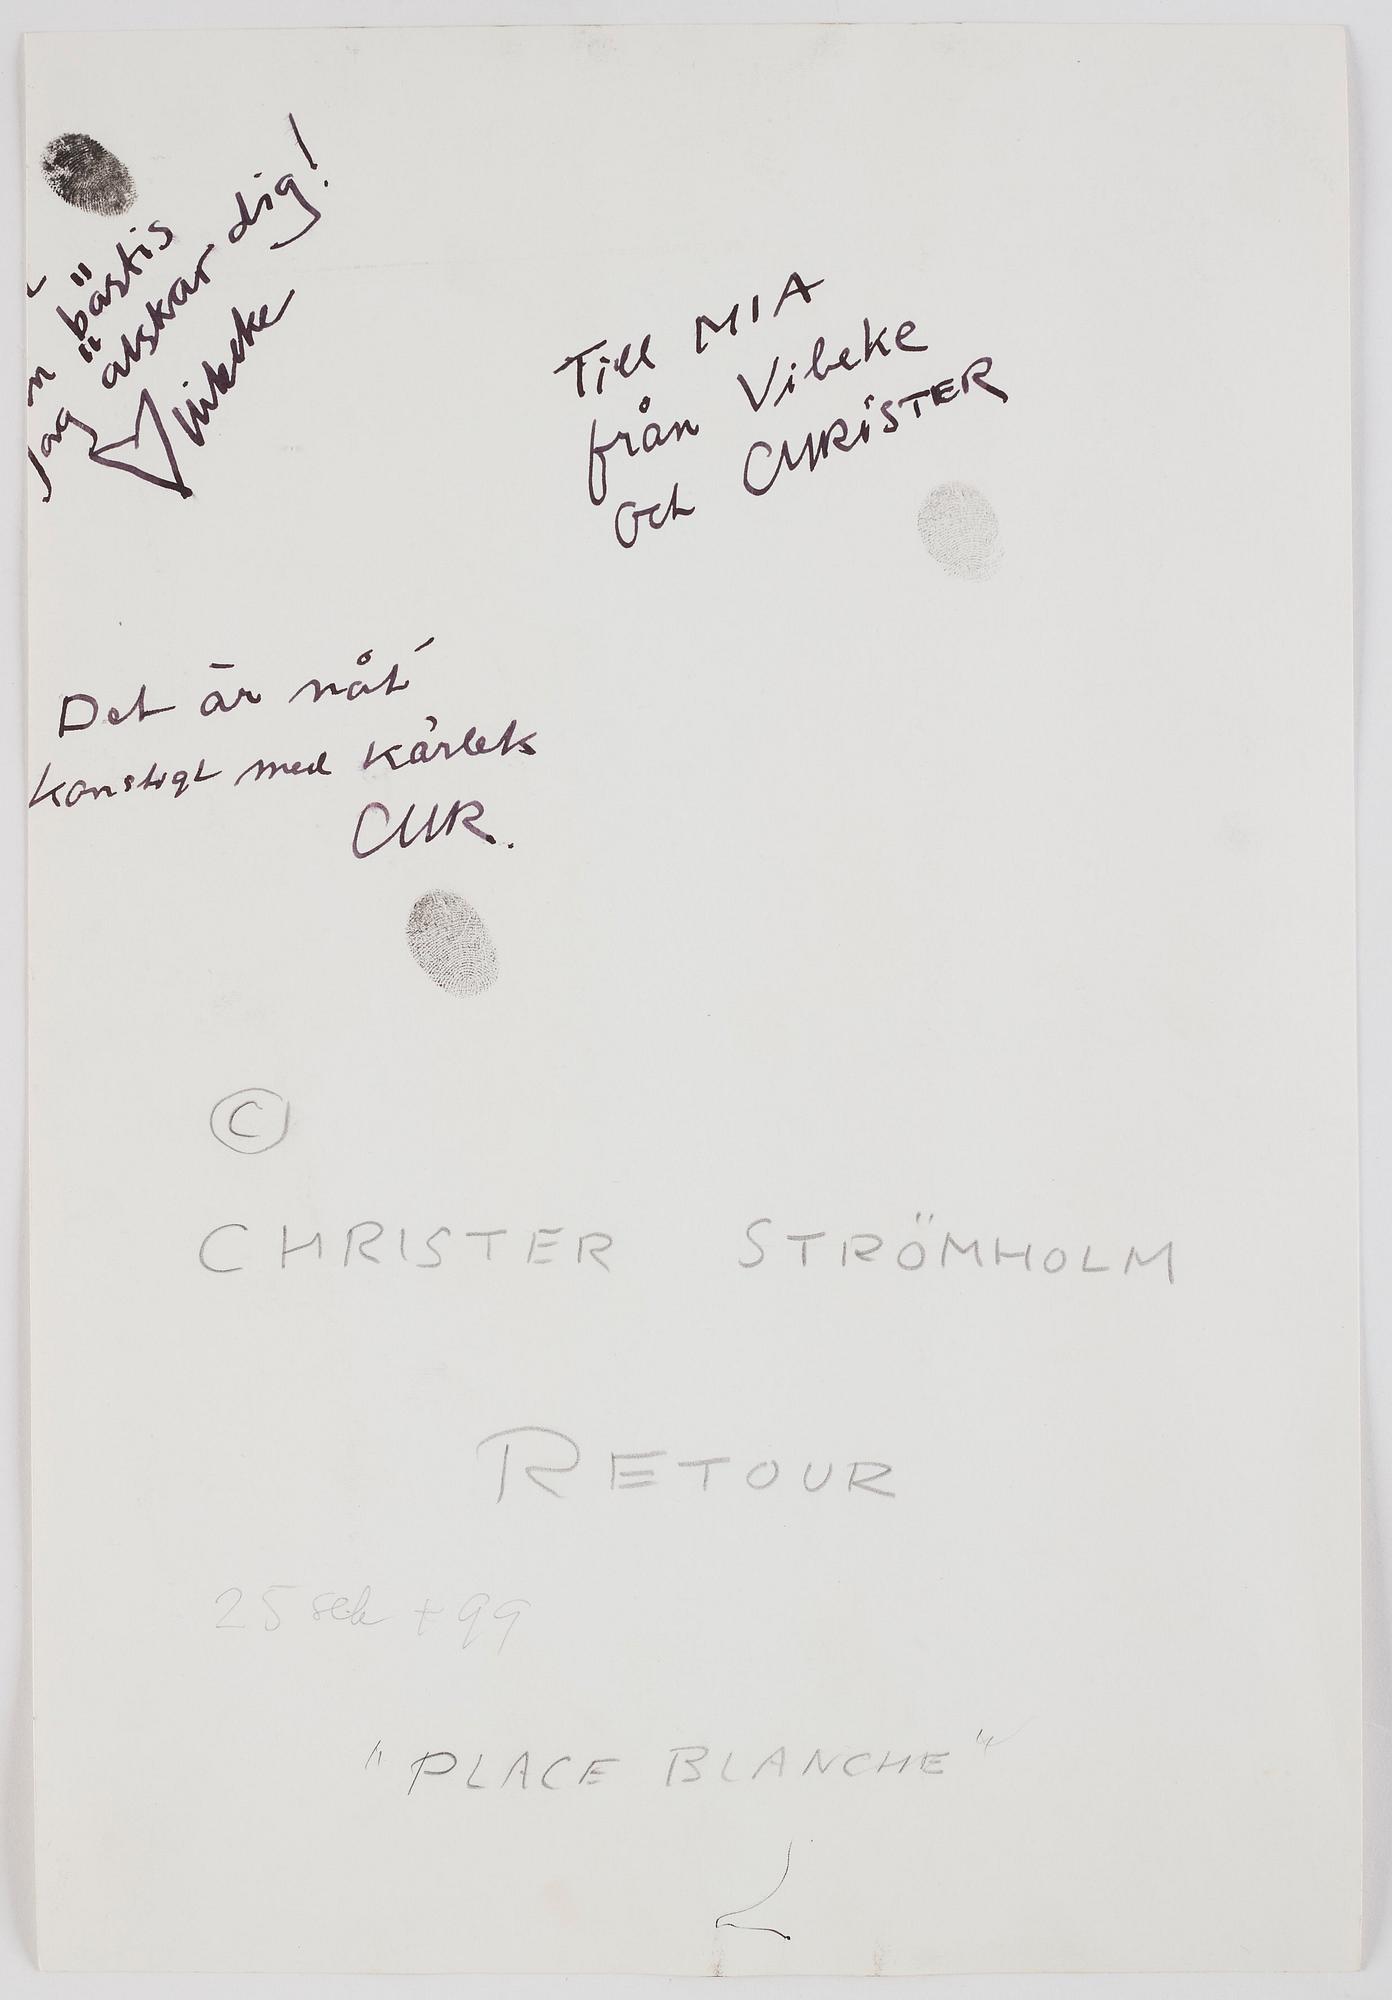 bästis
Jag älskar dig!
Vibeke
Till MIA
från Vibeke
och CHRISTER
Det är nåt
konstigt med kärlek
CHR.
©
CHRISTER STRÖMHOLM
RETOUR
25 sek + 99
"PLACE BLANCHE"